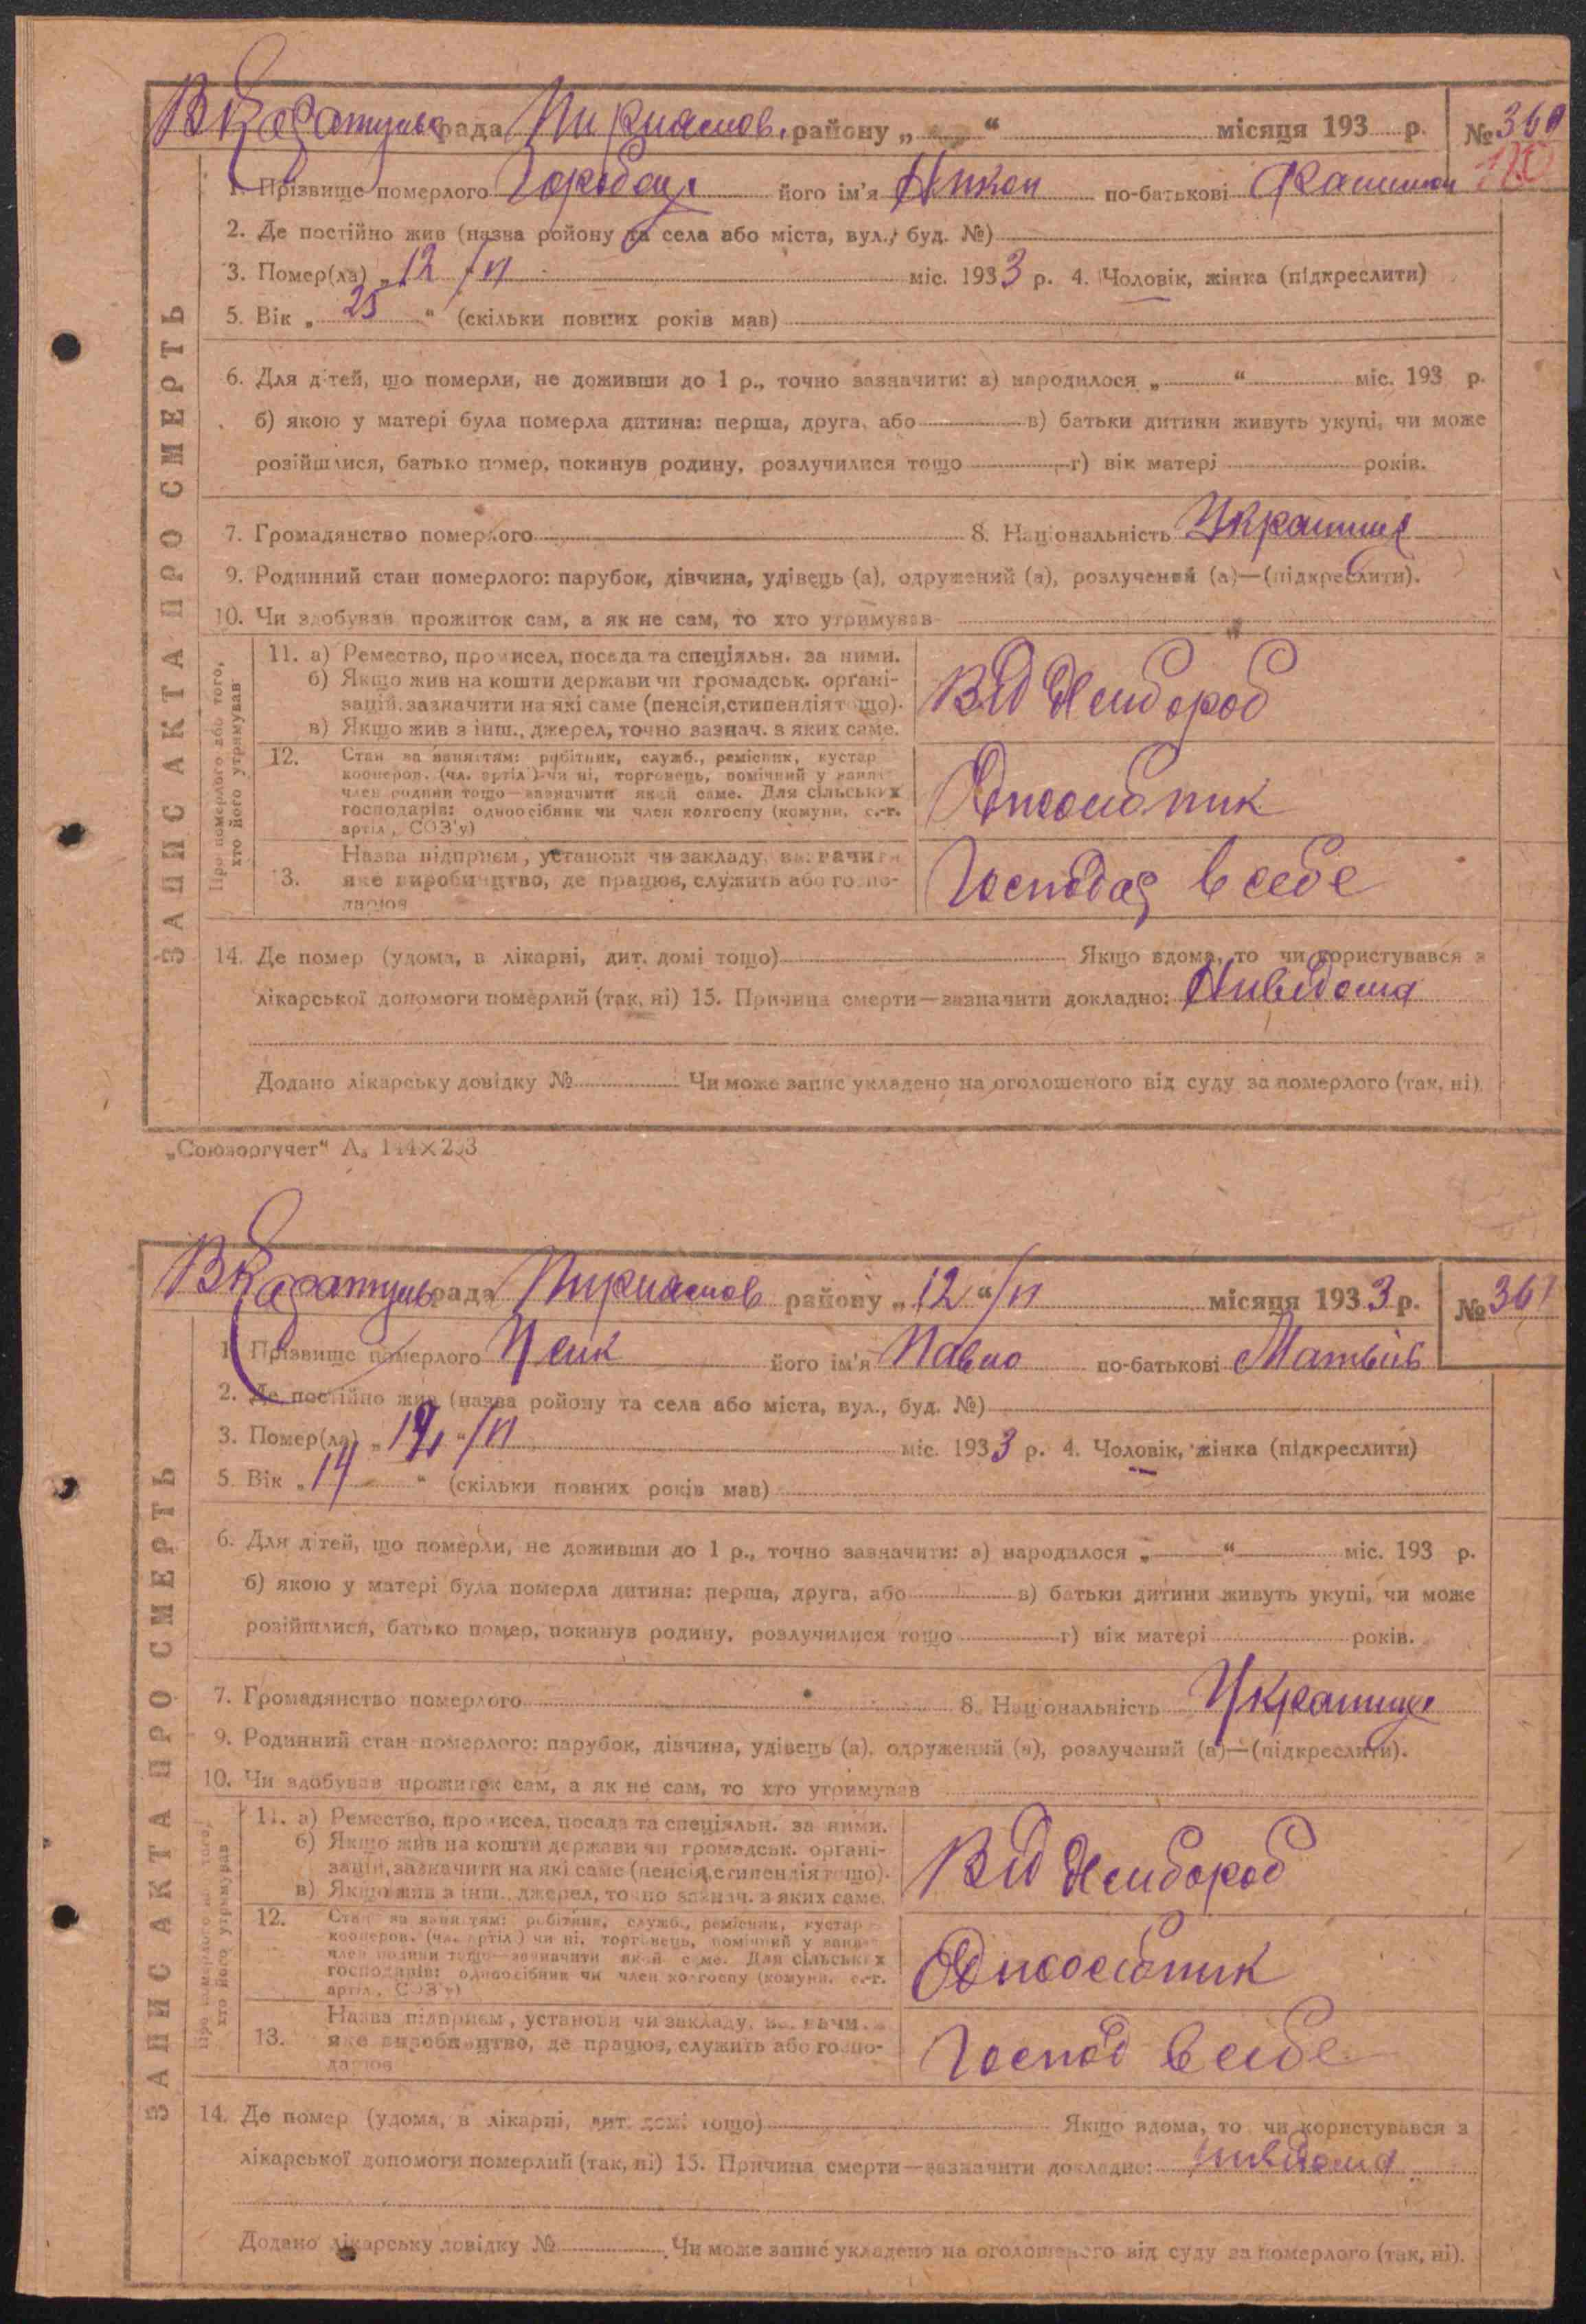 ЗАПИС АКТА ПРО СМЕРТЬ
В Каратульс рада Пирятинов. району „ “ місяця 193 р. № 360
120
1. Прізвище померлого Горобець його ім'я Никон по-батькові
2. Де постійно жив (назва ройону та села або міста, вул., буд. №)
3. Помер(ла) „12 /VI міс. 1933 р. 4. Чоловік, жінка (підкреслити)
5. Вік „ 25 “ (скільки повних років мав)
6. Для дітей, що померли, не доживши до 1 р., точно зазначити: а) народилося „ “ міс. 193 р.
б) якою у матері була померла дитина: перша, друга, або в) батьки дитини живуть укупі, чи може
розійшлися, батько помер, покинув родину, розлучилися тощо г) вік матері років.
7. Громадянство померлого 8. Національність Українець
9. Родинний стан померлого: парубок, дівчина, удівець (а), одружений (а), розлучений (а)—(підкреслити).
10. Чи здобував прожиток сам, а як не сам, то хто утримував
Про померлого або того, хто його утримував
11. а) Ремество, промисел, посада та спеціяльн. за ними.
б) Якщо жив на кошти держави чи громадськ. органі-
зацій, зазначити на які саме (пенсія, стипендія тощо).
в) Якщо жив з інш., джерел, точно зазнач. з яких саме.
Від
12. Стан за заняттям: робітник, служб., ремісник, кустар
кооперов. (чл. артіл.) чи ні, торговець, помічний у занят.
член родини тощо—зазначити який саме. Для сільських
господарів: одноосібник чи член колгоспу (комуни, с.-г.
артіл, СОЗ'у)
Одноосібник
13. Назва підприєм, установи чи закладу, зазначити
яке виробництво, де працює, служить або госпо-
дарює
Господар в себе
14. Де помер (удома, в лікарні, дит. домі тощо) Якщо вдома, то чи користувався з
лікарської допомоги померлий (так, ні) 15. Причина смерти—зазначити докладно: Нивідома
Додано лікарську довідку № Чи може запис укладено на оголошеного від суду за померлого (так, ні).
„Союзоргучет“ А₅ 144×203
ЗАПИС АКТА ПРО СМЕРТЬ
В Каратульс рада Пирятинов району „12“ /VI місяця 1933 р. № 361
1. Прізвище померлого його ім'я Павло по-батькові Матвіїв
2. Де постійно жив (назва ройону та села або міста, вул., буд. №)
3. Помер(ла) „12“ /VI міс. 1933 р. 4. Чоловік, жінка (підкреслити)
5. Вік „14 “ (скільки повних років мав)
6. Для дітей, що померли, не доживши до 1 р., точно зазначити: а) народилося „ “ міс. 193 р.
б) якою у матері була померла дитина: перша, друга, або в) батьки дитини живуть укупі, чи може
розійшлися, батько помер, покинув родину, розлучилися тощо г) вік матері років.
7. Громадянство померлого 8. Національність Українець
9. Родинний стан померлого: парубок, дівчина, удівець (а), одружений (а), розлучений (а)—(підкреслити).
10. Чи здобував прожиток сам, а як не сам, то хто утримував
Про померлого або того, хто його утримував
11. а) Ремество, промисел, посада та спеціяльн. за ними.
б) Якщо жив на кошти держави чи громадськ. органі-
зацій, зазначити на які саме (пенсія, стипендія тощо).
в) Якщо жив з інш., джерел, точно зазнач. з яких саме.
Від
12. Стан за заняттям: робітник, служб., ремісник, кустар
кооперов. (чл. артіл.) чи ні, торговець, помічний у занят.
член родини тощо—зазначити який саме. Для сільських
господарів: одноосібник чи член колгоспу (комуни, с.-г.
артіл, СОЗ'у)
Одноосібник
13. Назва підприєм, установи чи закладу, зазначити
яке виробництво, де працює, служить або госпо-
дарює
Господ в себе
14. Де помер (удома, в лікарні, дит. домі тощо) Якщо вдома, то чи користувався з
лікарської допомоги померлий (так, ні) 15. Причина смерти—зазначити докладно: нивідома
Додано лікарську довідку № Чи може запис укладено на оголошеного від суду за померлого (так, ні).